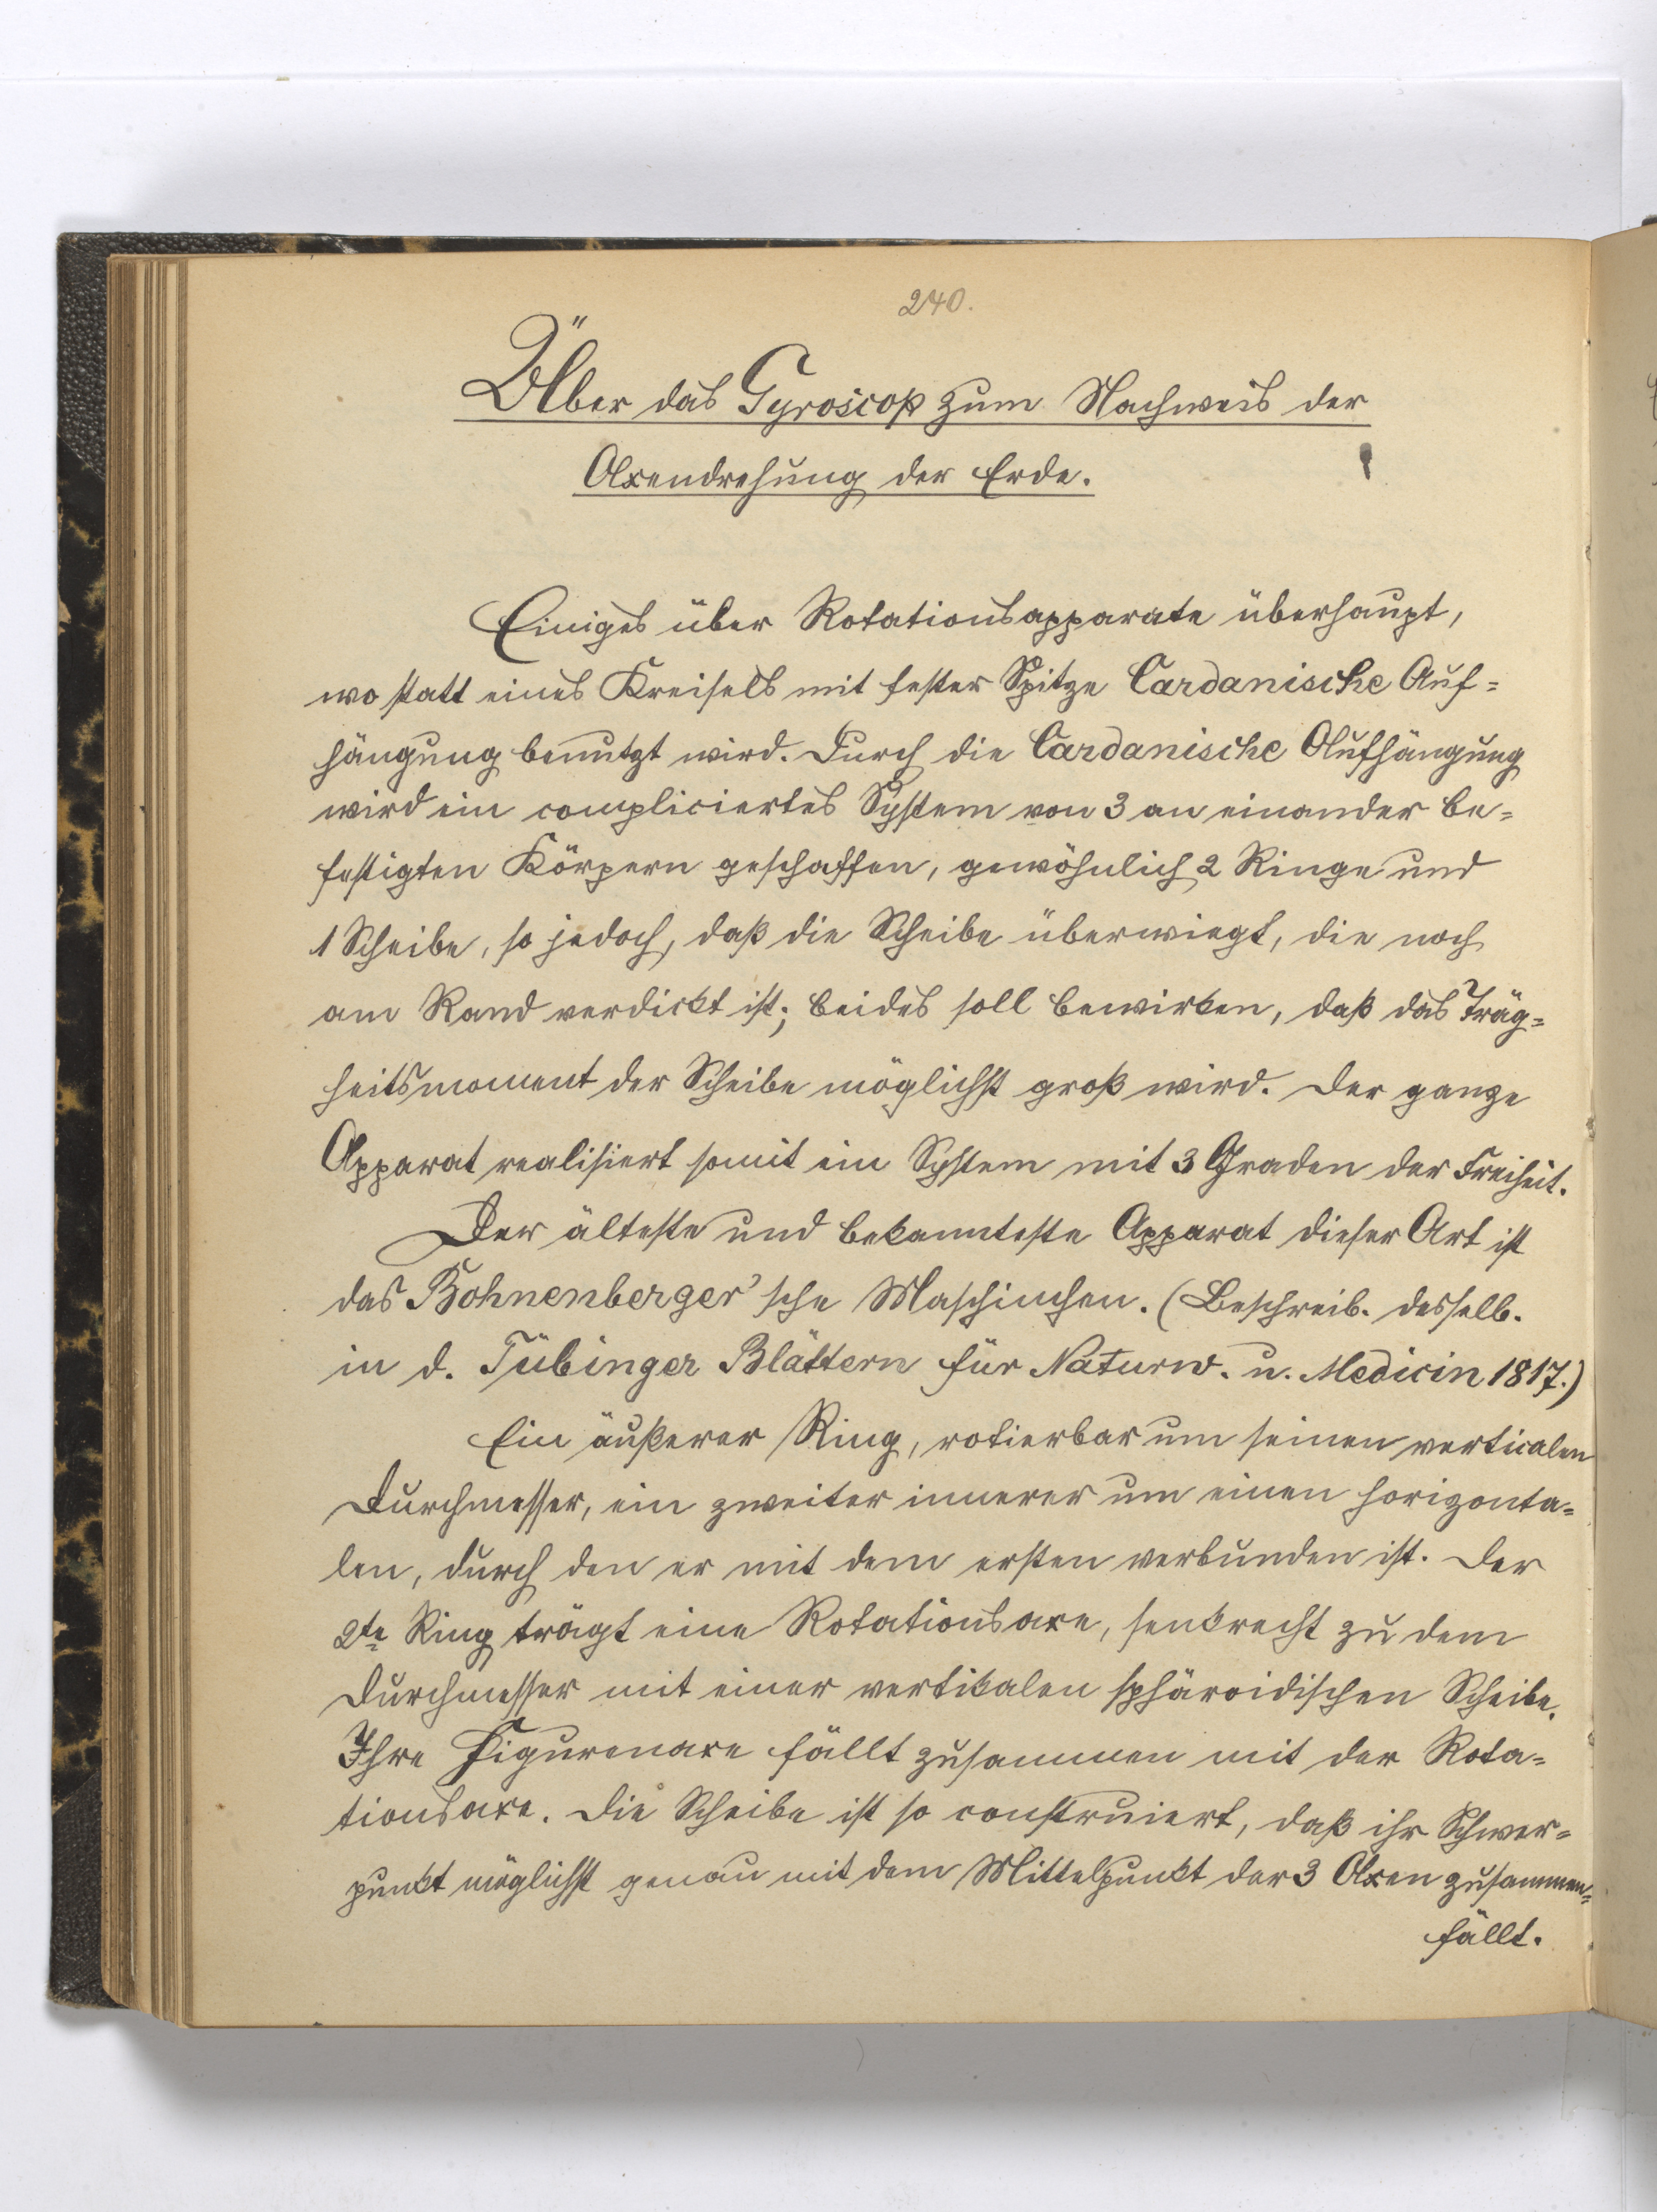 240.
Über das Gyroscop zum Nachweis der
Axendrehung der Erde.
Einiges über Rotationsapparate überhaupt,
wo statt eines Kreisels mit fester Spitze Cardanische Auf=
hängung benutzt wird. Durch die Cardanische Aufhängung
wird ein compliciertes System von 3 an einander be=
festigten Körpern geschaffen, gewöhnlich 2 Ringe und
1 Scheibe, so jedoch, daß die Scheibe überwiegt, die noch
am Rand verdickt ist; beides soll bewirken, daß das Träg=
heitsmoment der Scheibe möglichst groß wird. Der ganze
Apparat realisiert somit ein System mit 3 Graden der Freiheit.
Der älteste und bekannteste Apparat dieser Art ist
das Bohnenberger'sche Maschinchen. (Beschreib. desselb.
in d. Tübinger Blättern für Naturw. u. Medicin 1817.)
Ein äußerer Ring, rotierbar um seinen verticalen
Durchmesser, ein zweiter innerer um einen horizonta=
len, durch den er mit dem ersten verbunden ist. Der
2te Ring trägt eine Rotationsaxe, senkrecht zu dem
Durchmesser mit einer vertikalen sphäroidischen Scheibe.
Ihre Figurenaxe fällt zusammen mit der Rota=
tionsaxe. Die Scheibe ist so construiert, daß ihr Schwer=
punkt möglichst genau mit dem Mittelpunkt der 3 Axen zusammen=
fällt.